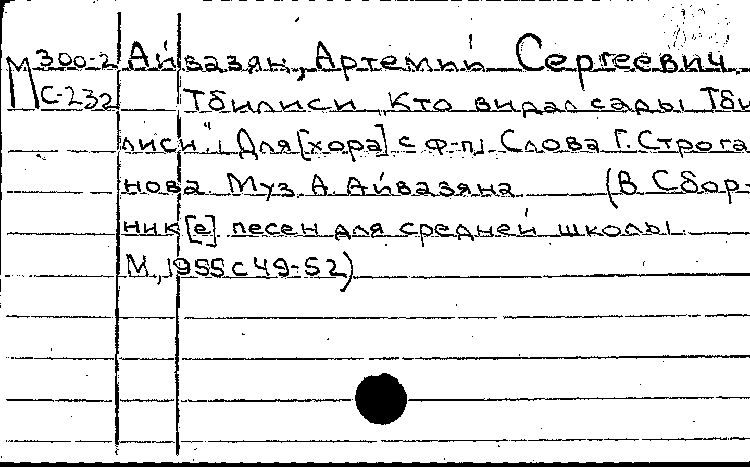 М 300-2 Айвазян, Артемий Сергеевич.
С-232 Тбилиси „Кто видал сады Тби
лиси". Для [хора] с ф-п. Слова Г. Строга
нова. Муз. А. Айвазяна (В Сбор-
ник[е] песен для средней школы.
М., 1955 с 49-52)